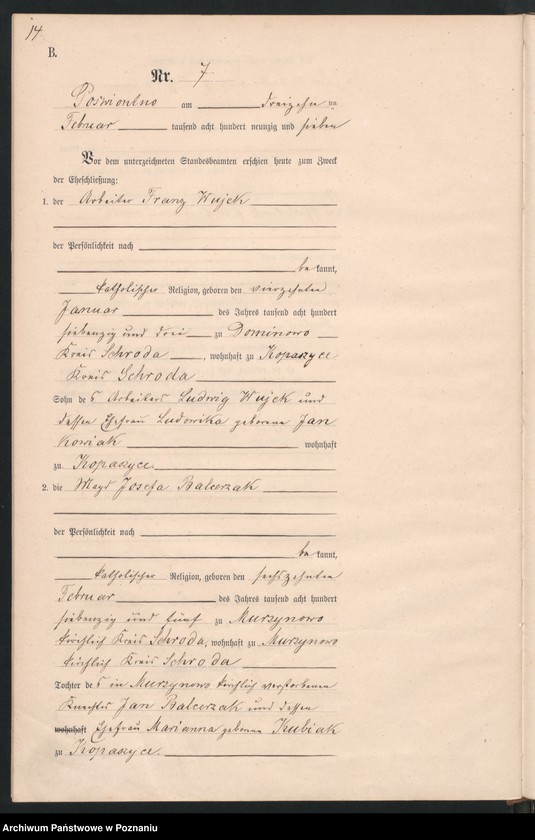 14.
B.
Nr. 7
Poswiontno am dreizehn ten
Februar tausend acht hundert neunzig und sieben
Vor dem unterzeichneten Standesbeamten erschien heute zum Zweck
der Eheschließung:
1. der Arbeiter Franz Wujek
der Persönlichkeit nach
be kannt,
katholischer Religion, geboren den vierzehnten
Januar des Jahres tausend acht hundert
siebenzig und drei zu Dominowo
Kreis Schroda, wohnhaft zu Kopaszyce
Kreis Schroda
Sohn des Arbeiters Ludwig Wujek und
dessen Ehefrau Ludowika geborene Jan
kowiak wohnhaft
zu Kopaszyce.
2. die Magd Josefa Balcerzak
der Persönlichkeit nach
be kannt,
katholischer Religion, geboren den sechszehnten
Februar des Jahres tausend acht hundert
siebenzig und fünf zu Murzynowo
kirchlich Kreis Schroda, wohnhaft zu Murzynowo
kirchlich Kreis Schroda
Tochter des in Murzynowo kirchlich verstorbenen
Knechts Jan Balcerzak und dessen
wohnhaft Ehefrau Marianna geborene Kubiak
zu Kopaszyce.
Archiwum Państwowe w Poznaniu